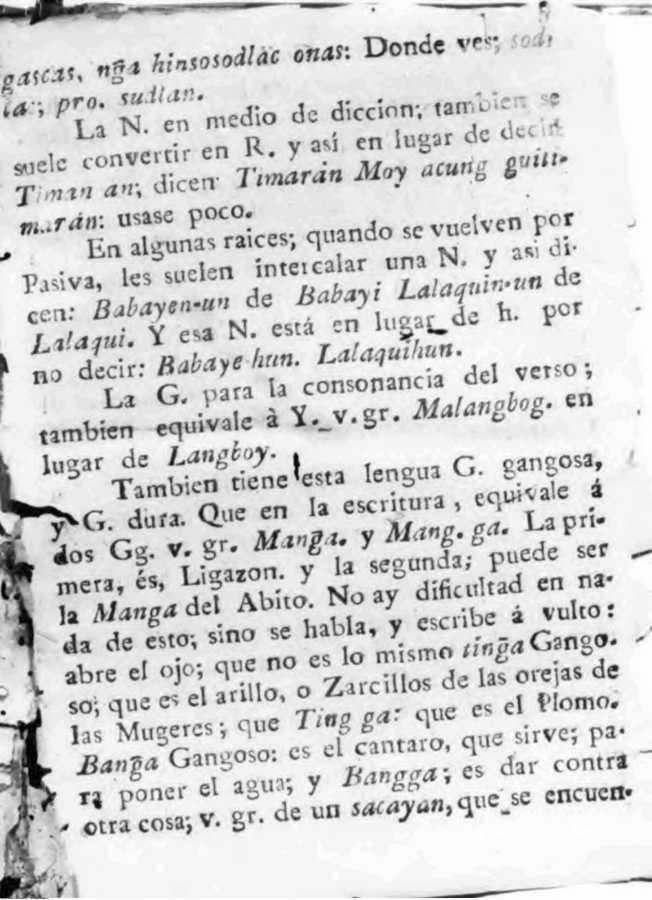 gascas, ng̃a hinsosodlac onas: Donde ves; sod-
la; pro. sudlan.
La N. en medio de diccion; tambien se
suele convertir en R. y así en lugar de decir
Timan an; dicen Timarán Moy acung guiti-
marán: usase poco.
En algunas raices; quando se vuelven por
Pasiva, les suelen intercalar una N. y asi di-
cen: Babayen-un de Babayi Lalaquin-un de
Lalaqui. Y esa N. está en lugar de h. por
no decir: Babaye-hun. Lalaquihun.
La G. para la consonancia del verso;
tambien equivale à Y. v. gr. Malangbog. en
lugar de Langboy.
Tambien tiene esta lengua G. gangosa,
y G. dura. Que en la escritura, equivale á
dos Gg. v. gr. Mang̃a. y Mang. ga. La pri-
mera, és, Ligazon. y la segunda; puede ser
la Manga del Abito. No ay dificultad en na-
da de esto; sino se habla, y escribe á vulto:
abre el ojo; que no es lo mismo ting̃a Gango-
so; que es el arillo, o Zarcillos de las orejas de
las Mugeres; que Ting ga: que es el Plomo.
Bang̃a Gangoso: es el cantaro, que sirve; pa-
ra poner el agua; y Bangga; es dar contra
otra cosa; v. gr. de un sacayan, que se encuen-